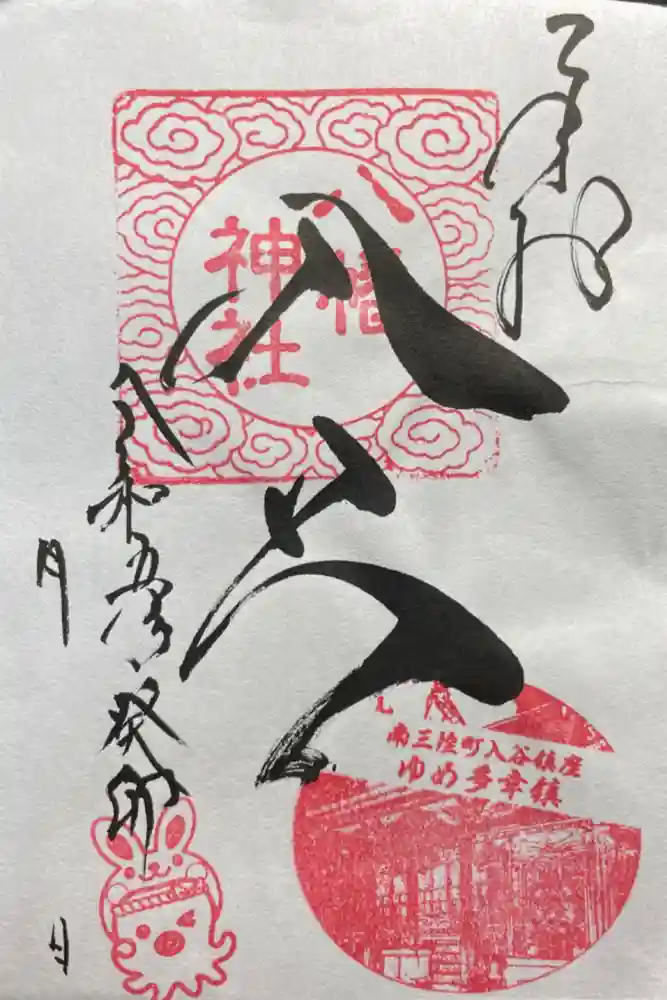 奉拝
八幡
神社
令和五年癸卯
月
日
南三陸町入谷鎮座
ゆめ多幸鎮